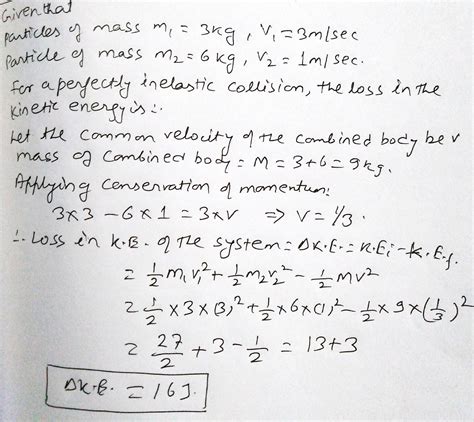 Given that
particles of mass m₁ = 3kg, V₁ = 3m/sec
Particle of mass m₂ = 6 kg, V₂ = 1m/sec.
For a perfectly inelastic collision, the loss in the
Kinetic energy is :.
Let the common velocity of the combined body be v
mass of Combined body = M = 3+6 = 9kg.
Applying Conservation of momentum:
3×3 - 6×1 = 3×v ⇒ V = 1/3.
∴ Loss in K.E. of the system = ΔK.E. = K.Ei - K.Ef.
= 1/2 m₁v₁² + 1/2 m₂v₂² - 1/2 Mv²
= 1/2 × 3 × (3)² + 1/2 × 6 × (1)² - 1/2 × 9 × (1/3)²
= 27/2 + 3 - 1/2 = 13+3
ΔK.E. = 16J.